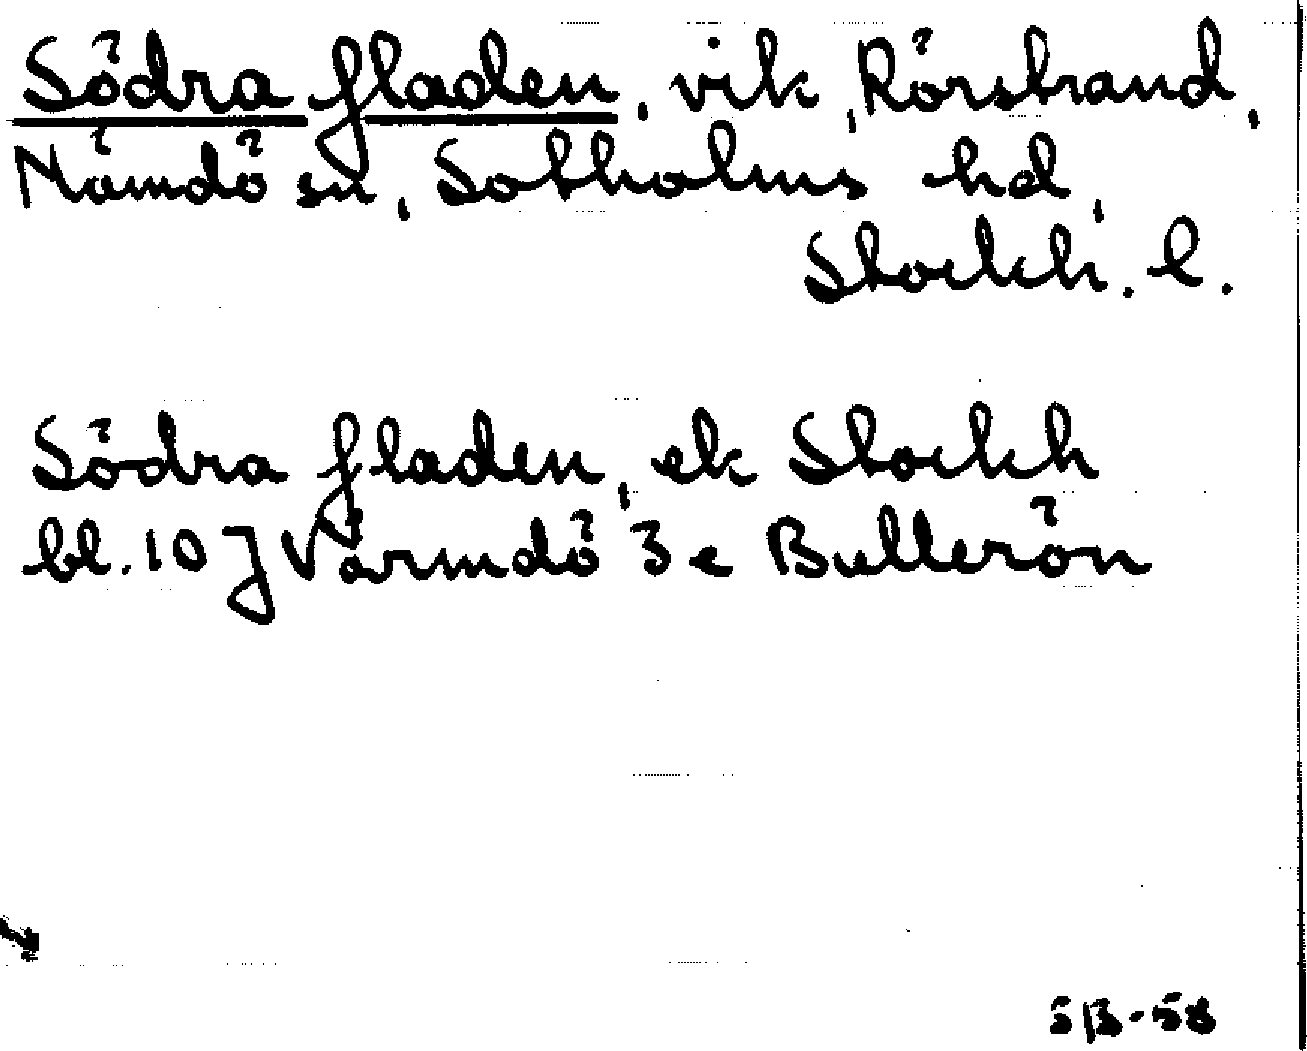 Södra fladen, vik, Rörstrand,
Nämdö sn, Sotholms hd,
Stockh. l.
Södra fladen, ek Stockh
bl. 10J Värmdö 3e Bullerön
5/3-58